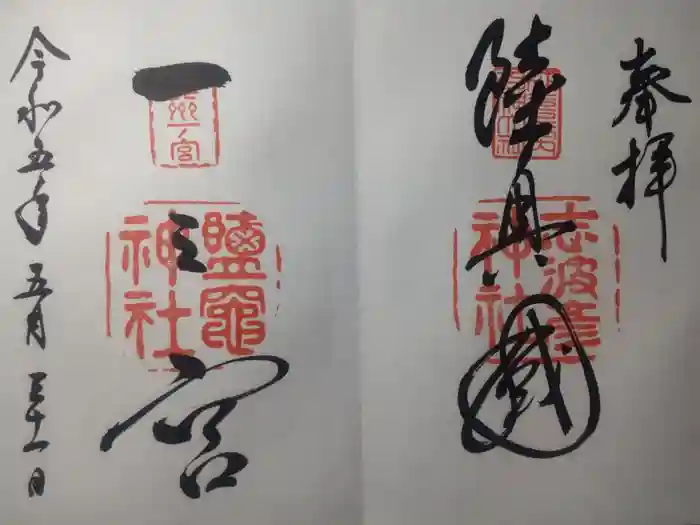 奉拝
陸奥國
志波彦
神社
一之宮
鹽竈
神社
令和五年 五月 三十一日